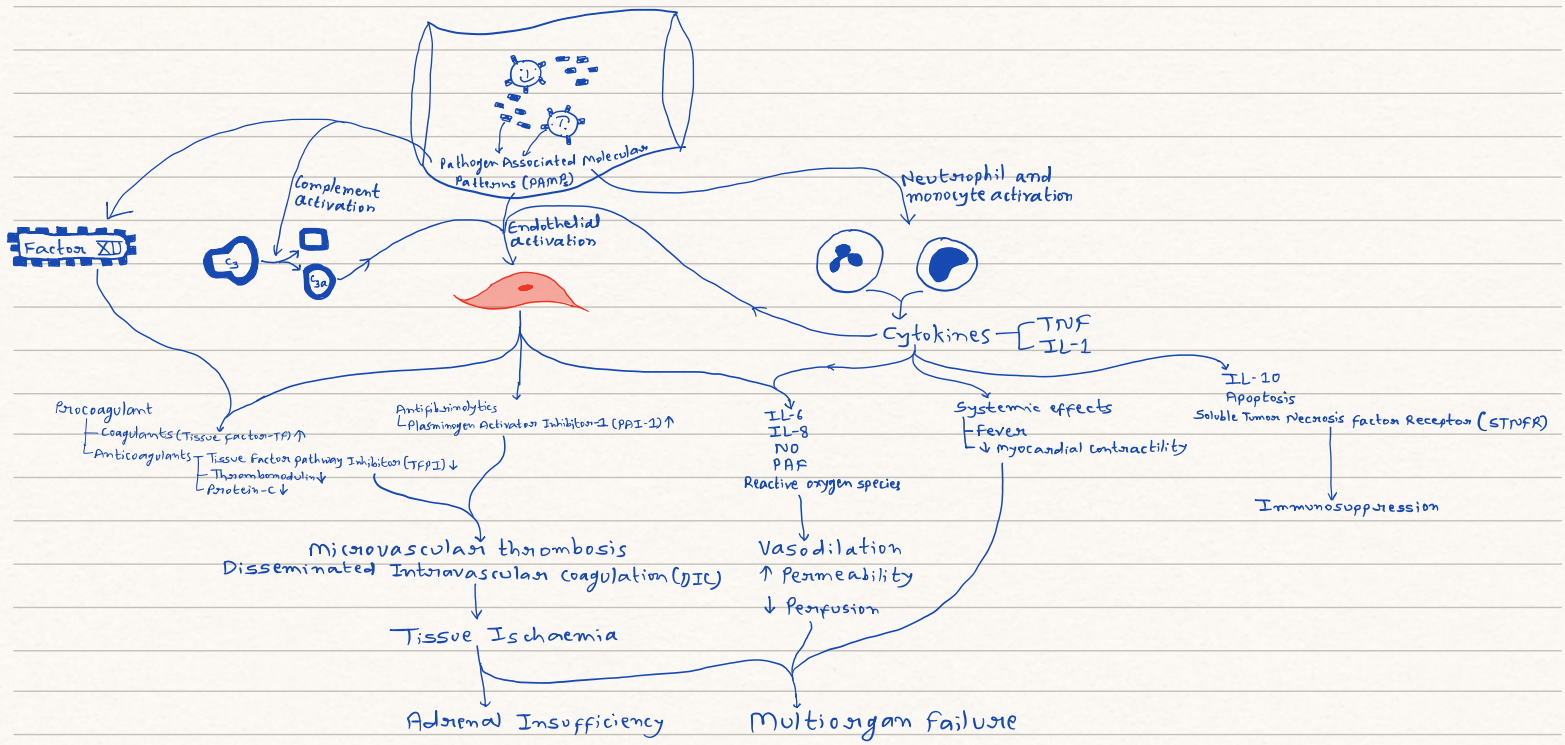 Pathogen Associated Molecular
Patterns (PAMPs)
Complement
activation
Neutrophil and
monocyte activation
Factor XII
C3
C3a
Endothelial
activation
Cytokines
TNF
IL-1
Procoagulant
Coagulants (Tissue factor-TF) ↑
Anticoagulants
Tissue Factor pathway Inhibitor (TFPI) ↓
Thrombomodulin ↓
Protein-C ↓
Antifibrinolytics
Plasminogen Activator Inhibitor-1 (PAI-1) ↑
IL-6
IL-8
NO
PAF
Reactive oxygen species
Systemic effects
Fever
↓ Myocardial contractility
IL-10
Apoptosis
Soluble Tumor Necrosis Factor Receptor (STNFR)
Immunosuppression
Microvascular thrombosis
Disseminated Intravascular coagulation (DIC)
Vasodilation
↑ Permeability
↓ Perfusion
Tissue Ischaemia
Adrenal Insufficiency
Multiorgan failure